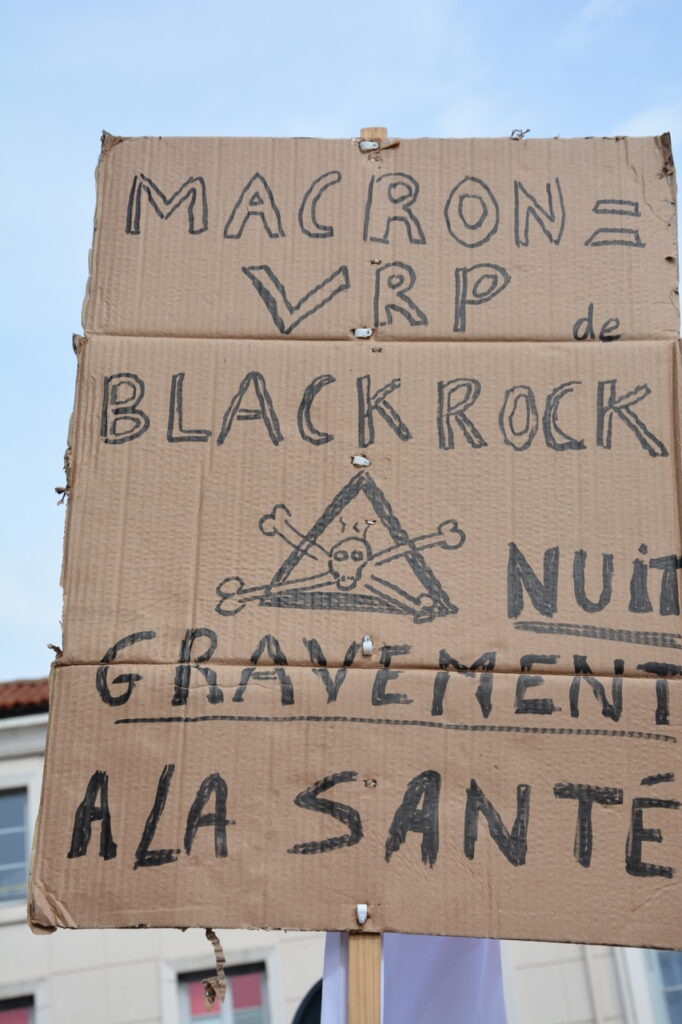 MACRON =
VRP de
BLACKROCK
NUIT
GRAVEMENT
A LA SANTÉ